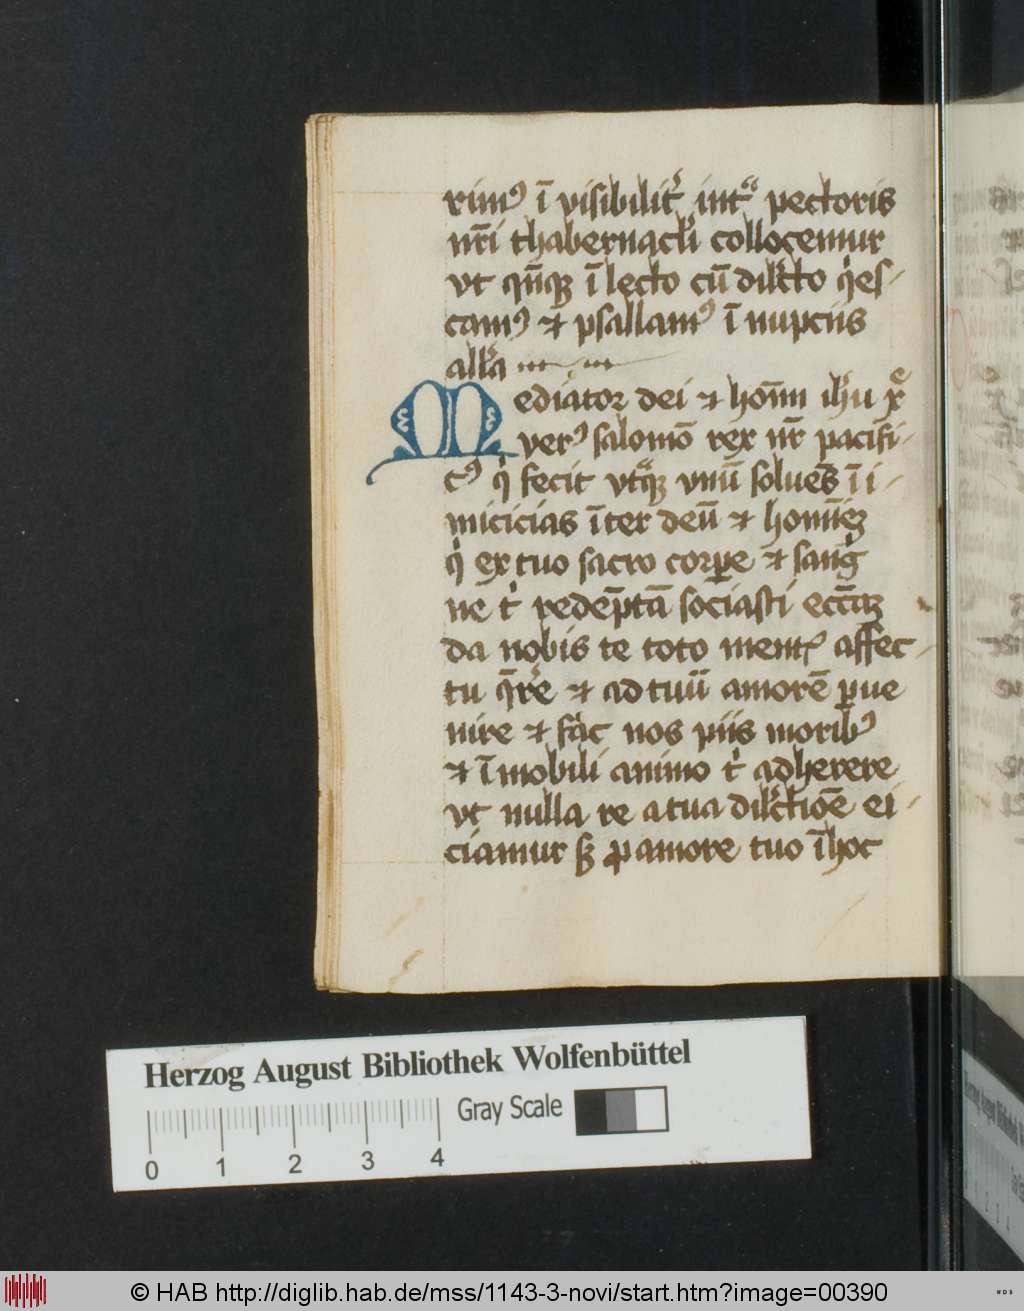 rimꝰ ī visibilit᷑ intᷓ pectoris
nr̄i thabernacl̓i collocemur
vt qn̄qꝫ ī lecto cū dilc̓to qͥes-
camꝰ ⁊ psallamꝰ ī nupciis
all̓a
Mediator dei ⁊ hom̄ ih̓u xp̄e
verꝰ salomō rex nr̄ pacifi-
cꝰ qͥ fecit vtᷓqꝫ vnū soluēs ī i-
micicias īter deū ⁊ homīeꝫ
qͥ ex tuo sacro corꝑe ⁊ sangͥ
ne tͥ redēptā sociasti eccāꝫ
da nobis te toto ment᷑ affec-
tu qᷓr̓e ⁊ ad tuū amorē ꝑue
nire ⁊ fac nos piis moribꝰ
⁊ īmobili animo tͥ adherere
vt nulla re a tua dilc̓tiōe ei-
ciamur sꝫ ꝓ amore tuo ī hoc
Herzog August Bibliothek Wolfenbüttel
Gray Scale
0 1 2 3 4
© HAB http://diglib.hab.de/mss/1143-3-novi/start.htm?image=00390